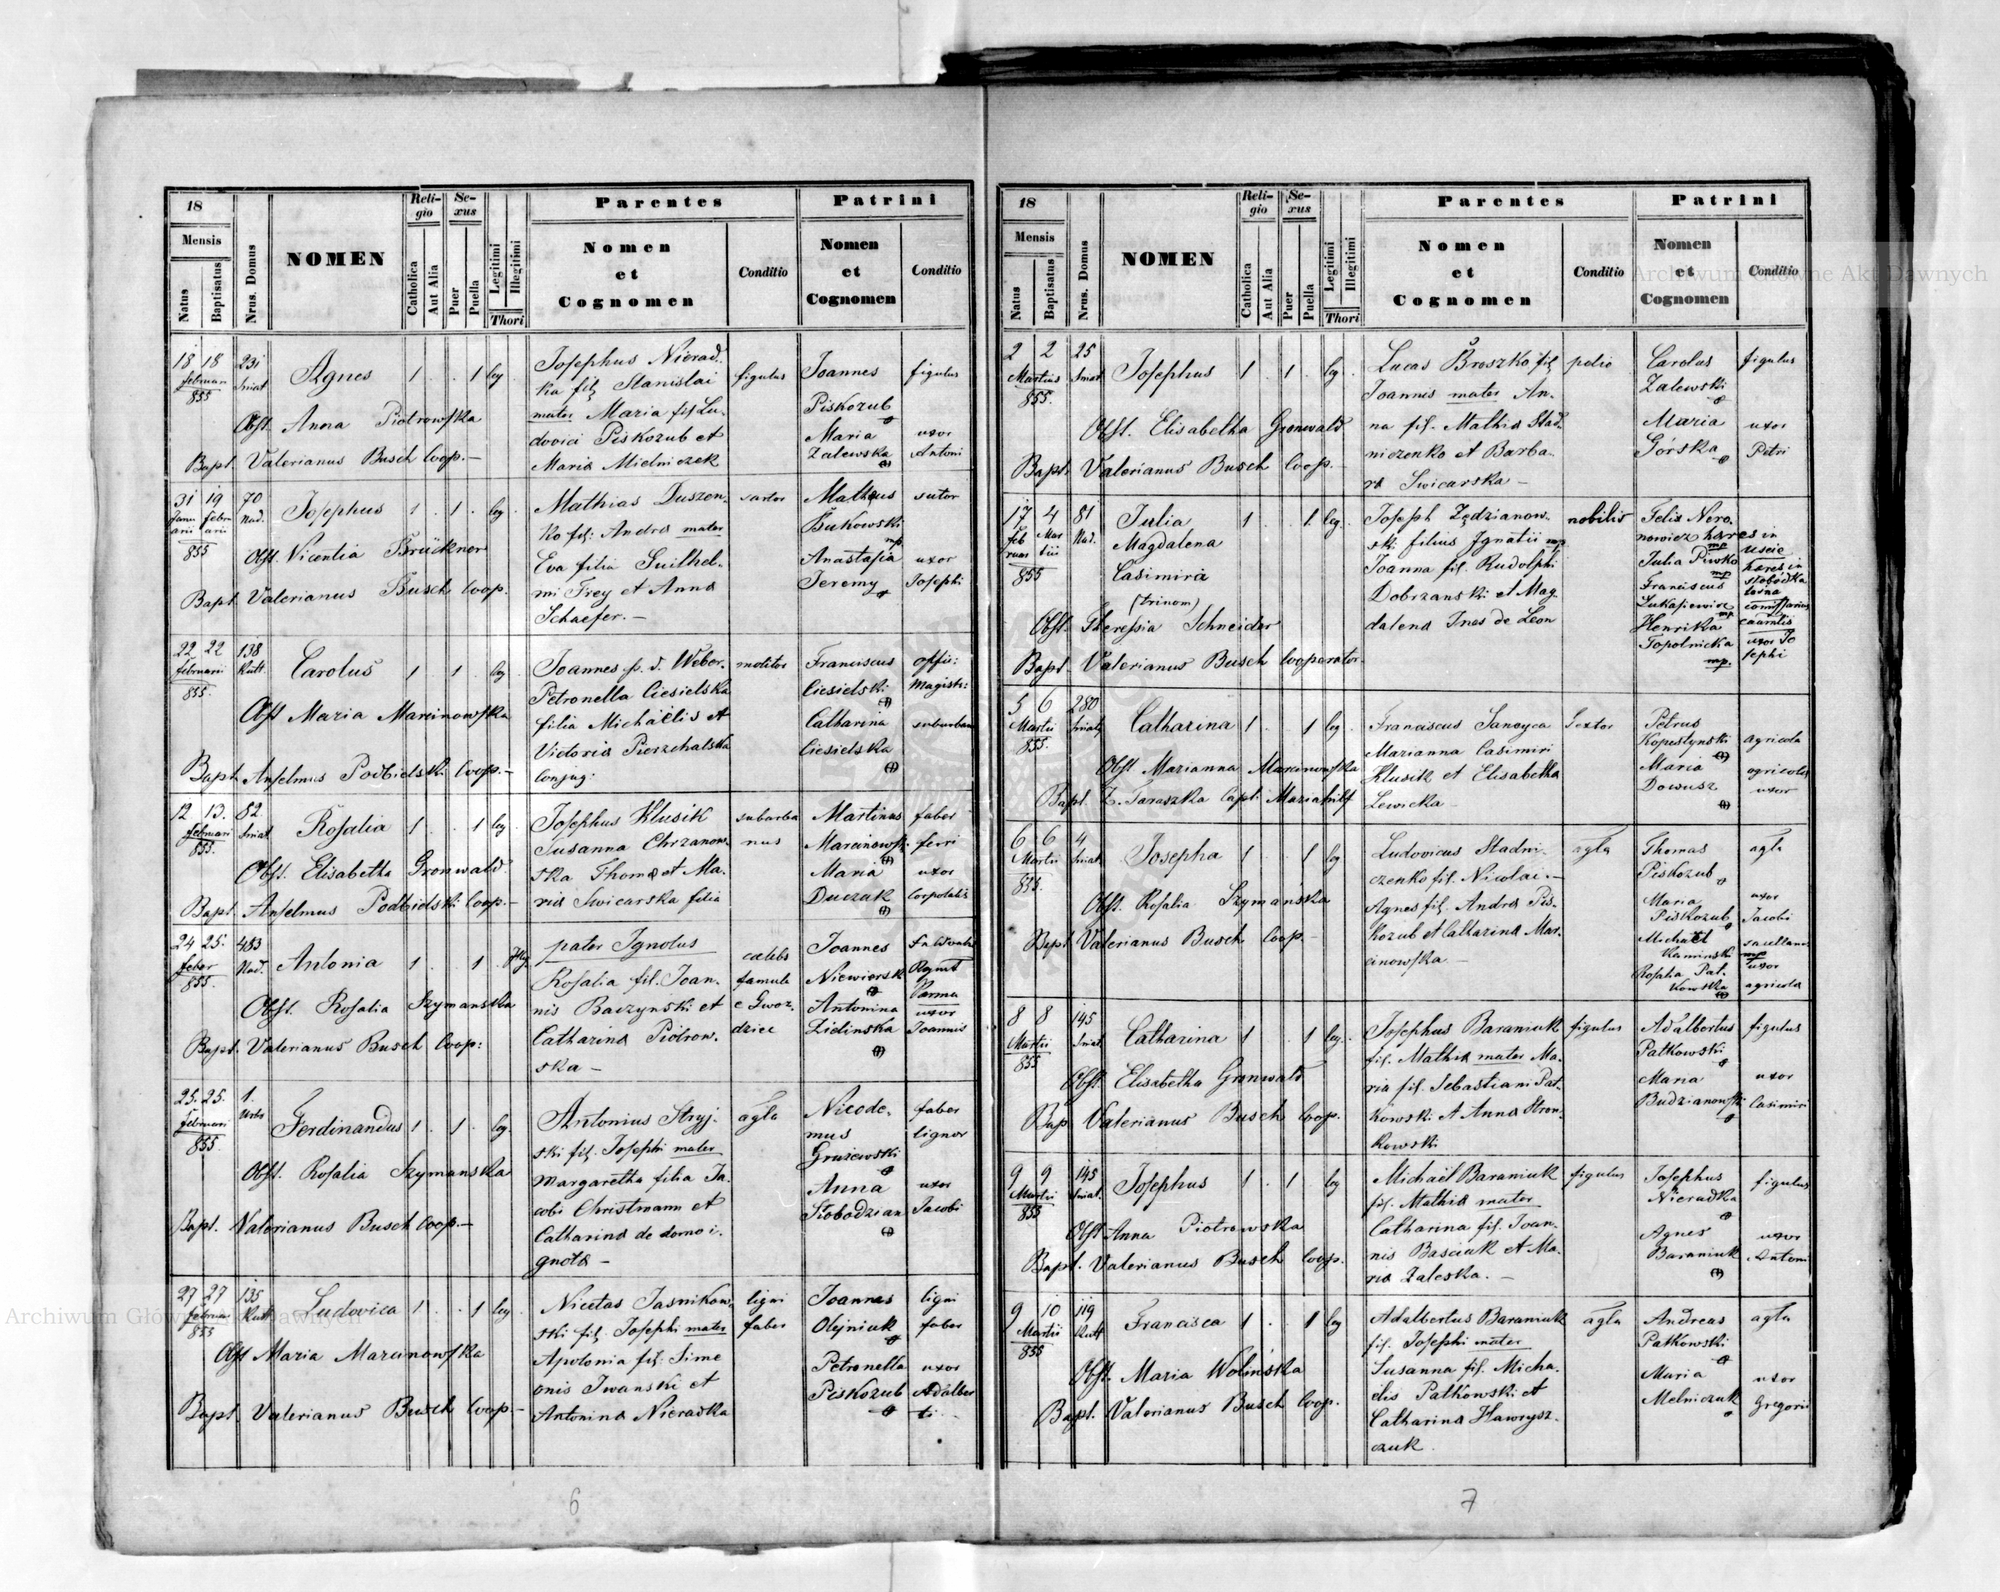 18
Mensis
Natus
Baptisatus
Nrus. Domus
NOMEN
Reli-
gio
Catholica
Aut Alia
Se-
xus
Puer
Puella
Legitimi
Illegitimi
Thori
Parentes
Nomen
et
Cognomen
Conditio
Patrini
Nomen
et
Cognomen
Conditio
18 18 231 Agnes 1 . . 1 leg. Josephus Nierad- figulus Joannes figulus
februarii
855
ka fil: Stanislai
mater Maria fil. Lu- Piskozub
Obst. Anna Piotrowska dovici Piskozub et Maria uxor
Bapt. Valerianus Busch Coop.- Maria Mielniczek Zalewska Antoni
31 19 70 Josephus 1 . 1 . leg. Mathias Duszen- sartor Matheus sutor
Nad.
855 ko fil: Andrea mater Bukowski mp
Obst. Vicentia Brückner Eva filia Guilhel- Anastasia uxor
Bapt. Valerianus Busch Coop. mi Frey et Anna Jeremy Josephi
Schaefer.-
22 22 138 Carolus 1 . 1 . leg. Joannes p. d. Weber molitor Franciscus offic:
februarii
855. Petronella Ciesielska Ciesielski Magistr:
Obst Maria Marcinowska filia Michaëlis et Catharina suburban
Victoria Pierzchalska Ciesielska
Bapt. Anselmus Podbielski Coop.- Conjug:
12 13. 82 Rosalia 1 . . 1 leg. Josephus Klusik suburba Martinus faber
februarii
855. Susanna Chrzanow- nus Marcinowski ferri
Obst. Elisabetha Gronwald ska Thoma et Ma- Maria uxor
Bapt. Anselmus Podbielski Coop.- ria Swicarska filia Duczuk
24 25. 483 Antonia 1 . . 1 pater Ignotus caelebs Joannes
Nad.
855. Rosalia fil. Joan- famula Niewiersk Regmt
Obst. Rosalia Szymanska nis Baczynski et e Gwoz- Antonina Parma
uxor
Bapt. Valerianus Busch Coop: Catharina Piotrow- dziec Zielinska Joannis
ska -
25. 25. 1. Ferdinandus 1 . 1 . leg. Antonius Stryj- agla Nicode- faber
februarii
855. ski fil. Josephi mater mus lignar
Gruszewski
Obst. Rosalia Szymanska Margaretha filia Ja- Anna uxor
cobi Christmann et Slobodzian Jacobi
Bapt. Valerianus Busch Coop.- Catharina de domo i-
gnota -
27 27 135 Ludovica 1 . . 1 leg. Nicetas Jasnikow- ligni Joannes ligni
855 ski fil: Josephi mater faber Olejniuk faber
Obst Maria Marcinowska Apolonia fil. Sime Petronella uxor
onis Iwanski et Piskozub Adalber
Bapt. Valerianus Busch Coop.- Antonina Nieradka ti.
6
18
Mensis
Natus
Baptisatus
Nrus. Domus
NOMEN
Reli-
gio
Catholica
Aut Alia
Se-
xus
Puer
Puella
Legitimi
Illegitimi
Thori
Parentes
Nomen
et
Cognomen
Conditio
Patrini
Nomen
et
Cognomen
Conditio
2 2 25 Josephus 1 . 1 . leg. Lucas Broszko fil. pelio Carolus figulus
Martius
855. Joannis mater An- Zalewski
Obst. Elisabetha Gronwald na fil. Mathia Stad- Maria uxor
Bapt. Valerianus Busch Coop. niczenko et Barba- Górska Petri
ra Swicarska -
17 4 81 Julia 1 . . 1. leg. Joseph Zędzianow- nobilis Felix Nero-
Nad. Magdalena ski filius Ignatii mp nowicz mp hares in
855 Casimira Joanna fil. Rudolphi Julia Piwko mp Uscie
(trinom) Dobrzanski et Mag- Franciscus hares in
Obst. Theressia Schneider dalena Ines de Leon Lukasiewicz mp
Henrika
Bapt. Valerianus Busch Cooperator Topolnicka mp. uxor Jo
sephi
5 6 280 Catharina 1 . . 1 leg. Franciscus Sanoyca Textor Petrus
Martii
855. Marianna Casimiri Kopestynski agricola
Obst Marianna Marcinowska Klusik et Elisabetha Maria agricola
Bapt. Z. Taraszka Capl: Mariahilf Lewicka - Dowusz uxor
6 6 4 Josepha 1 . . 1 leg Ludovicus Stadni- agla Thomas agla
Martii
855. czenko fil. Nicolai.- Piskozub
Obst. Rosalia Szymańska Agnes fil. Andrea Pis- Maria uxor
Piskozub Jacobi
Bapt Valerianus Busch Coop - kozub et Catharina Mar- Michael
Kaminski mp
cinowska - Rosalia Pat- uxor
kowska agricola
8 8 145 Catharina 1 . . 1 leg. Josephus Baraniuk figulus Adalbertus figulus
Martii
855 fil. Mathia mater Ma- Patkowski
Obst Elisabetha Gronwald ria fil. Sebastiani Pat- Maria uxor
Bap Valerianus Busch Coop. kowski et Anna Stron- Budzianowski Casimiri
kowski
9 9 145 Josephus 1 . 1 . leg Michaël Baraniuk figulus Josephus figulus
Martii
855 fil. Mathia mater Nieradka
Obst Anna Piotrowska Catharina fil. Joan- Agnes uxor
Bapt. Valerianus Busch Coop. nis Basciuk et Ma- Baraniuk Antoni
ria Zaleska. -
9 10 119 Francisca 1 . . 1 leg Adalbertus Baraniuk agla Andreas agla
Martii
855 fil. Josephi mater Patkowski
Obst. Maria Wolińska Susanna fil. Micha- Maria uxor
elis Patkowski et Melniczuk Gregorii
Bapt. Valerianus Busch Coop. Catharina Hawrysz-
czuk.
7
Archiwum Główne Akt Dawnych
Archiwum Główne Akt Dawnych